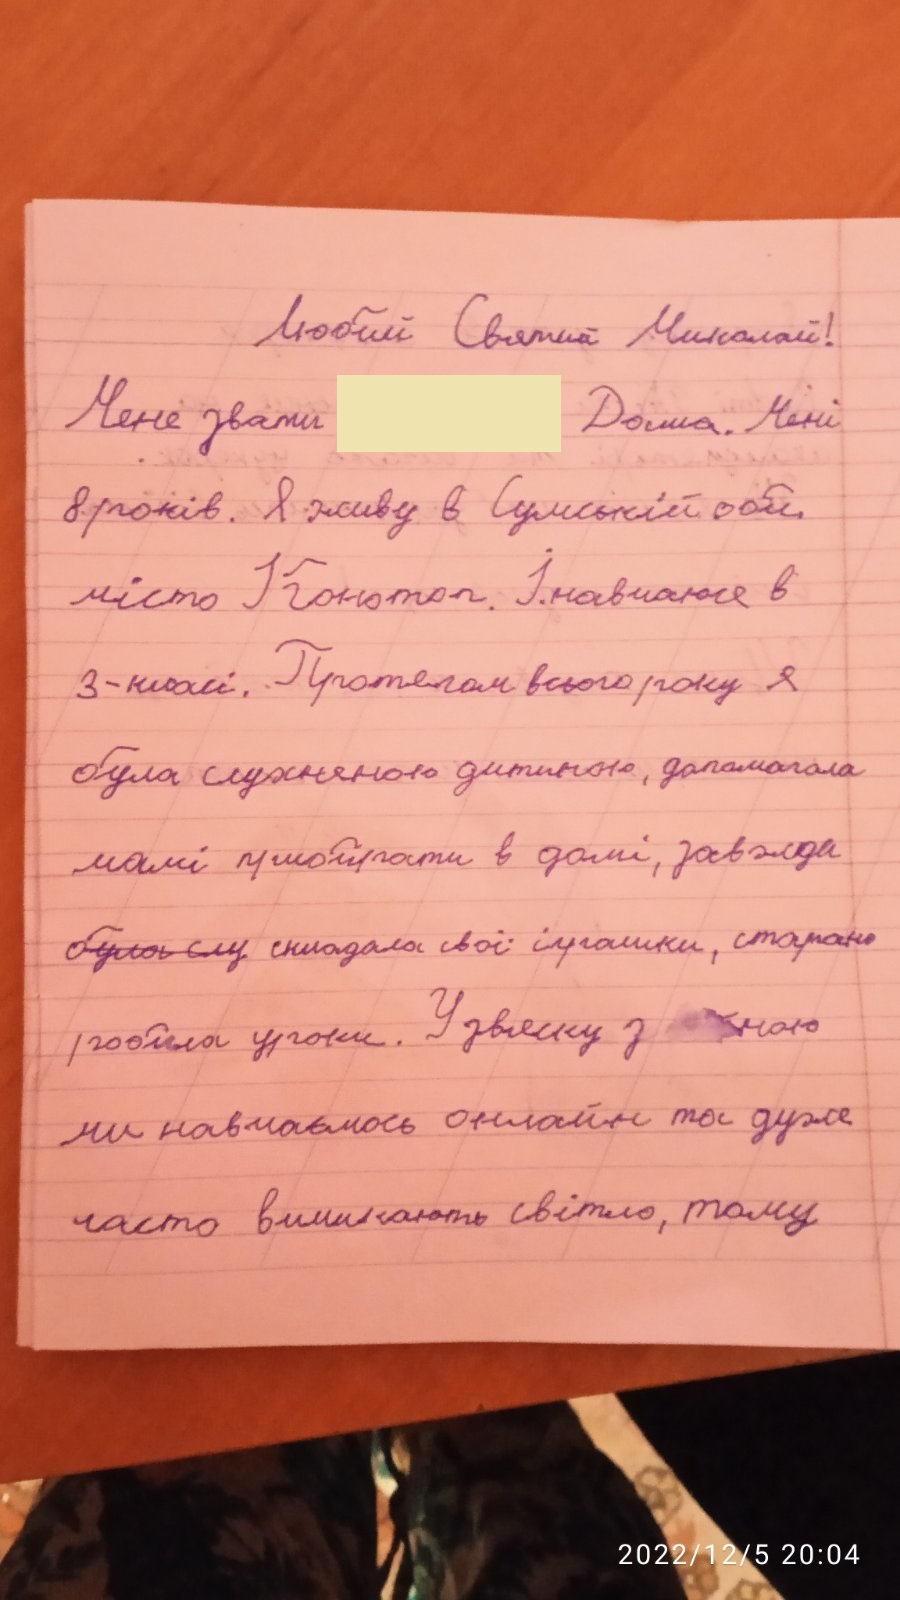 Любий Святий Миколай!
Мене звати Доша. Мені
8 років. Я живу в Сумській обл.
місто Конотоп. І навчаюсе в
3-класі. Протягом всього року я
була слухненою дитиною, допомагала
мамі прибирати в домі, завжди
була слу складала свої іграшки, старано
робила уроки. У звяску з
ми навчаємось онлайн та дуже
часто вимикають світло, тому
2022/12/5 20:04